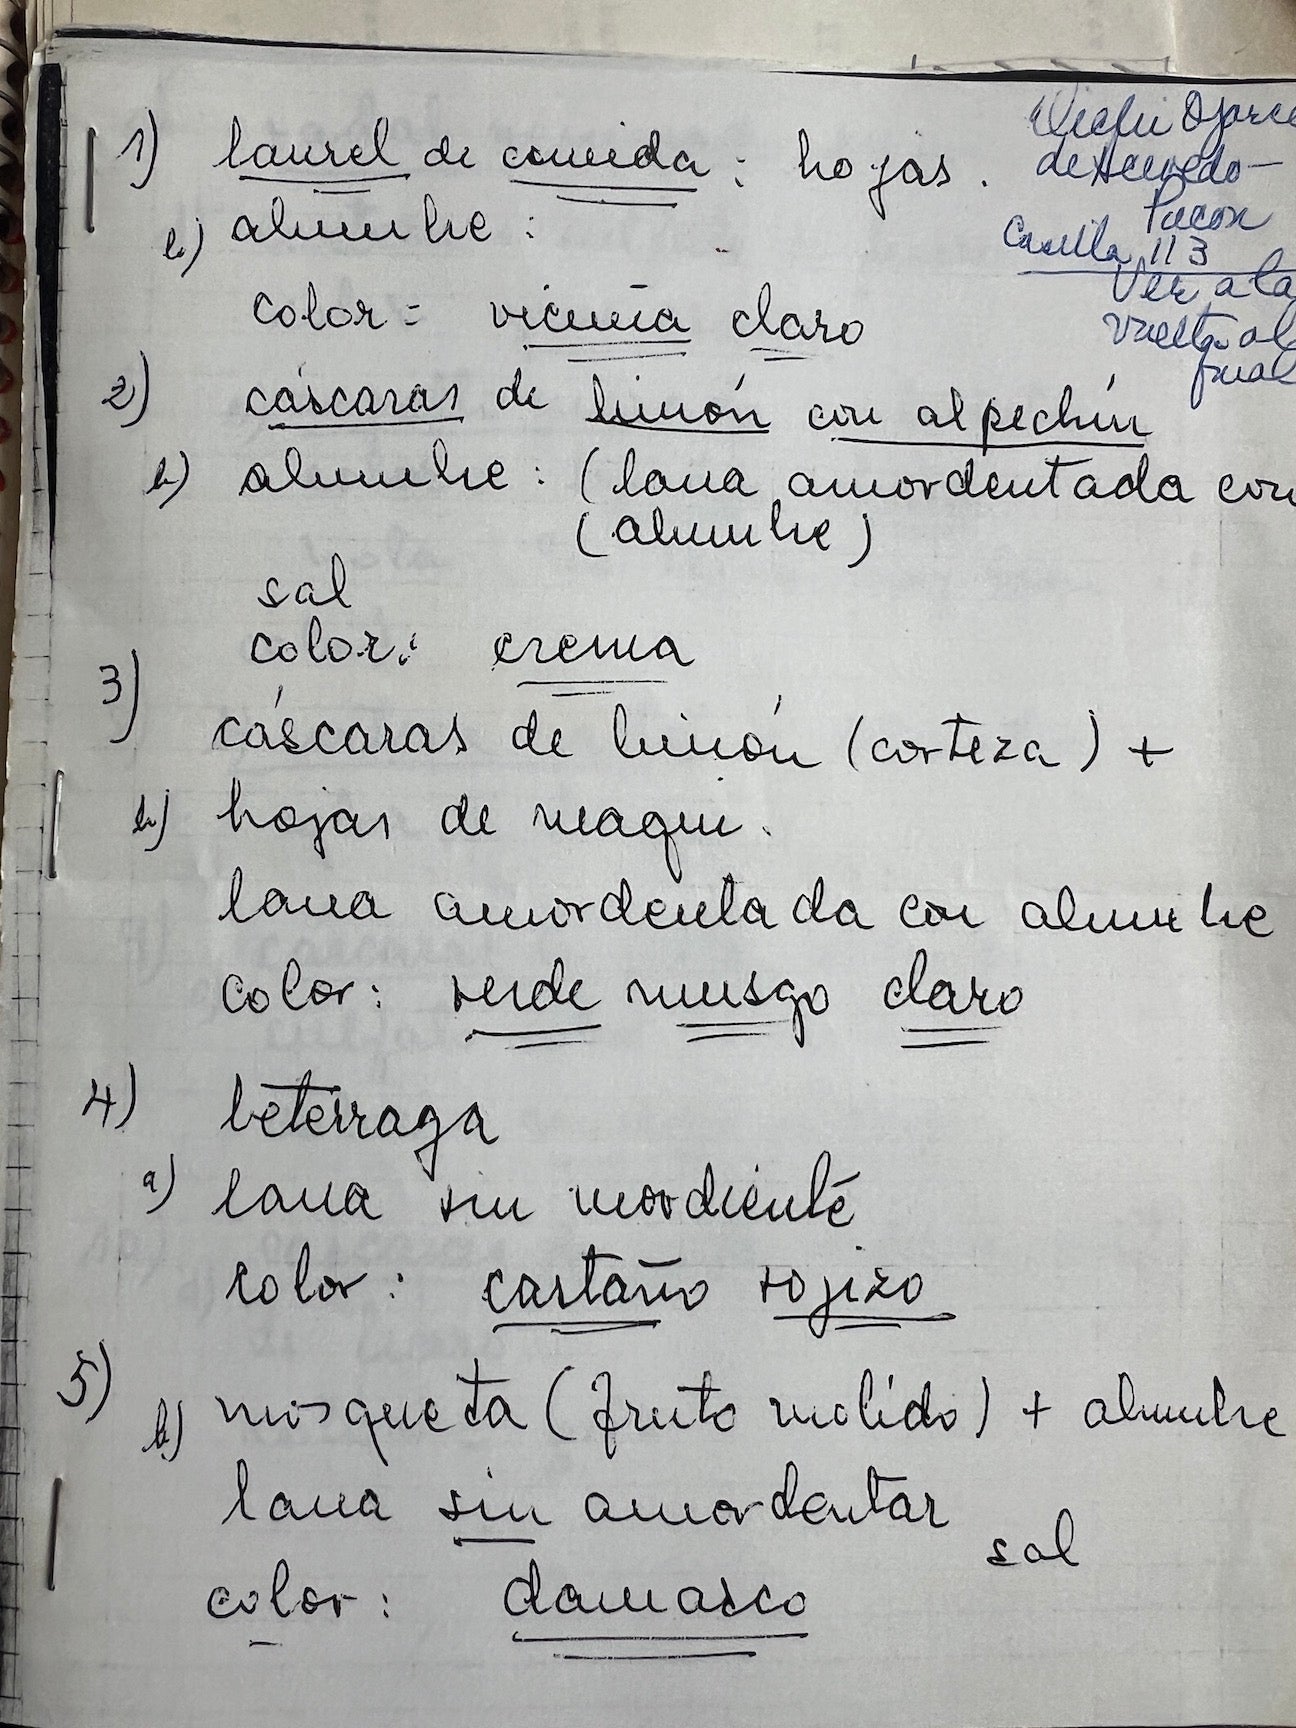 1) laurel de comida : hojas.
b) alumbre :
color = vicuña claro
2) cáscaras de limón con alpechín
b) alumbre : (lana amordentada con
(alumbre)
sal
color : crema
3)
cáscaras de limón (corteza) +
b) hojas de maqui.
lana amordentada con alumbre
color : verde musgo claro
4) beterraga
a) lana sin mordiente
color : castaño rojizo
5)
b) mosqueta (fruto molido) + alumbre
lana sin amordentar
sal
color : damasco
de Acevedo —
Pucon
Casilla 113
Ver a la
vuelta al
final